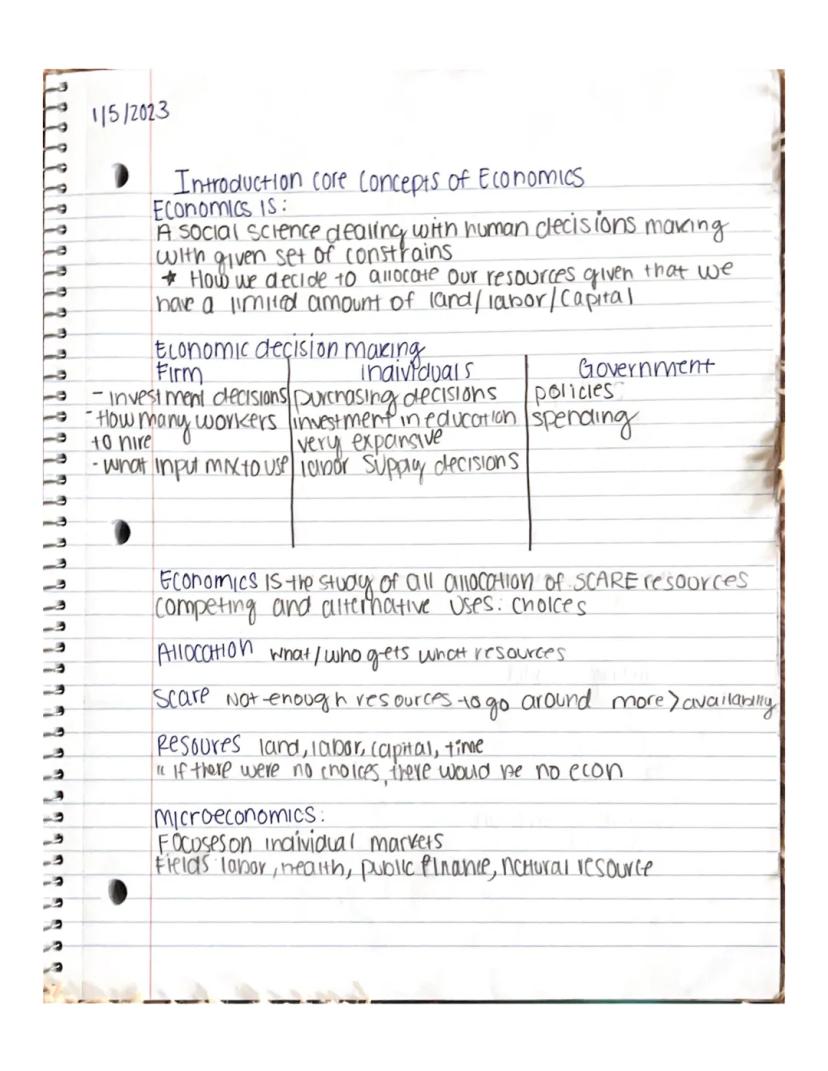 1/5/2023
Introduction core concepts of Economics
Economics is:
A social science dealing with human decisions making
with given set of constrains
* How we decide to allocate our resources given that we
have a limited amount of land/labor/Capital
Economic decision making
Firm
- investment decisions
- How many workers
to hire
- what input mix to use
individuals
purchasing decisions
investment in education
very expansive
labor supply decisions
Government
policies
spending
Economics is the study of all allocation of SCARE resources
competing and alternative uses: choices
Allocation what/who gets what resources
Scare Not enough resources to go around more > availability
Resoures land, labor, capital, time
" if there were no choices, there would be no econ
Microeconomics:
Focuses on individual markets
Fields: labor, health, public finance, natural resource